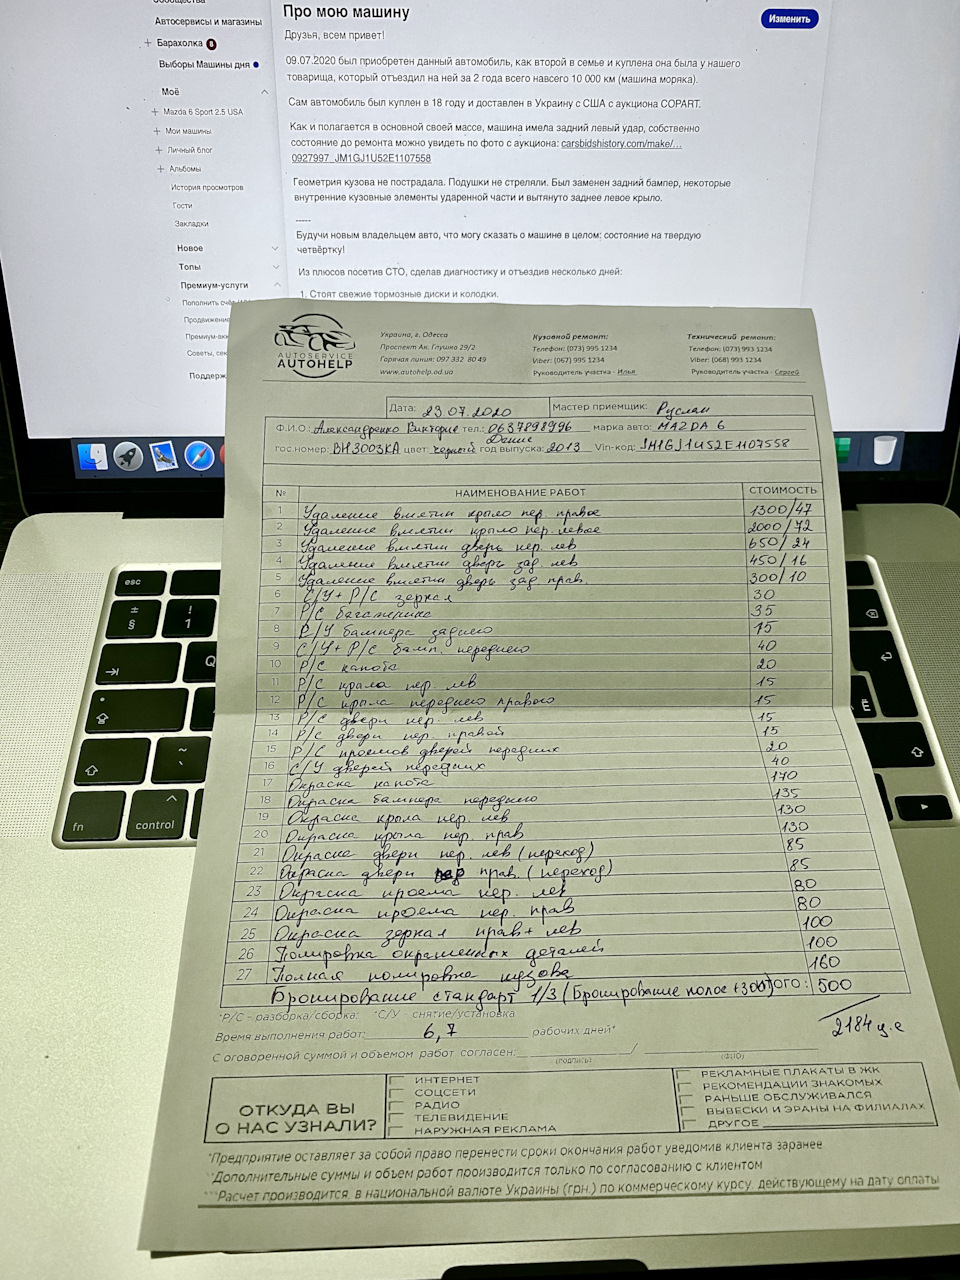 Автосервисы и магазины
Барахолка 8
Выборы Машины дня
Моё
Mazda 6 Sport 2.5 USA
Мои машины
Личный блог
Альбомы
История просмотров
Гости
Закладки
Новое
Топы
Премиум-услуги
Пополнить счёт
Продвижение
Премиум-ак
Советы, сек
Поддерж
Про мою машину
Изменить
Друзья, всем привет!
09.07.2020 был приобретен данный автомобиль, как второй в семье и куплена она была у нашего
товарища, который отъездил на ней за 2 года всего навсего 10 000 км (машина моряка).
Сам автомобиль был куплен в 18 году и доставлен в Украину с США с аукциона COPART.
Как и полагается в основной своей массе, машина имела задний левый удар, собственно
состояние до ремонта можно увидеть по фото с аукциона: carsbidshistory.com/make/…
0927997_JM1GJ1U52E1107558
Геометрия кузова не пострадала. Подушки не стреляли. Был заменен задний бампер, некоторые
внутренние кузовные элементы ударенной части и вытянуто заднее левое крыло.
-----
Будучи новым владельцем авто, что могу сказать о машине в целом: состояние на твердую
четвёртку!
Из плюсов посетив СТО, сделав диагностику и отъездив несколько дней:
1. Стоят свежие тормозные диски и колодки.
AUTOSERVICE
AUTOHELP
Украина, г. Одесса
Проспект Ак. Глушко 29/2
Горячая линия: 097 332 80 49
www.autohelp.od.ua
Кузовной ремонт:
Телефон: (073) 995 1234
Viber: (067) 995 1234
Руководитель участка - Илья
Технический ремонт:
Телефон: (073) 993 1234
Viber: (068) 993 1234
Руководитель участка - Сергей
Дата: 23.07.2020 Мастер приемщик: Руслан
Ф.И.О.: Александренко Виктория тел.: 0637898996 марка авто: MAZDA 6
Денис
гос.номер: ВН3003КА цвет: черный год выпуска: 2013 Vin-код: JM1GJ1U52E1107558
№ НАИМЕНОВАНИЕ РАБОТ СТОИМОСТЬ
1 Удаление вмятин крыло пер правое 1300/47
2 Удаление вмятин крыло пер. левое 2000/72
3 Удаление вмятин дверь пер. лев 650/24
4 Удаление вмятин дверь зад лев 450/16
5 Удаление вмятин дверь зад прав. 300/10
6 С/У + Р/С зеркал 30
7 Р/С багажника 35
8 Р/У бампера заднего 15
9 С/У + Р/С бамп. переднего 40
10 Р/С капота 20
11 Р/С крыла пер. лев 15
12 Р/С крыла переднего правого 15
13 Р/С двери пер. лев 15
14 Р/С двери пер. правой 15
15 Р/С проемов дверей передних 20
16 С/У дверей передних 40
17 Окраска капота 170
18 Окраска бампера переднего 135
19 Окраска крыла пер. лев 130
20 Окраска крыла пер. прав 130
21 Окраска двери пер. лев (переход) 85
22 Окраска двери пер прав. (переход) 85
23 Окраска проема пер. лев 80
24 Окраска проема пер. прав 80
25 Окраска зеркал прав + лев 100
26 Полировка окрашенных деталей 100
27 Полная полировка кузова 160
Бронирование стандарт 1/3 (Бронирование полос +300) ИТОГО: 500
*Р/С - разборка/сборка: *С/У - снятие/установка
2184 у.е
Время выполнения работ: 6,7 рабочих дней*
С оговоренной суммой и объемом работ согласен: /
(подпись) (ФИО)
ОТКУДА ВЫ
О НАС УЗНАЛИ?
ИНТЕРНЕТ
СОЦСЕТИ
РАДИО
ТЕЛЕВИДЕНИЕ
НАРУЖНАЯ РЕКЛАМА
РЕКЛАМНЫЕ ПЛАКАТЫ В ЖК
РЕКОМЕНДАЦИИ ЗНАКОМЫХ
РАНЬШЕ ОБСЛУЖИВАЛСЯ
ВЫВЕСКИ И ЭРАНЫ НА ФИЛИАЛАХ
ДРУГОЕ
*Предприятие оставляет за собой право перенести сроки окончания работ уведомив клиента заранее
**Дополнительные суммы и объем работ производится только по согласованию с клиентом
***Расчет производится, в национальной валюте Украины (грн.) по коммерческому курсу, действующему на дату оплаты
esc
± §
! 1
Q
~
fn
control
Ё